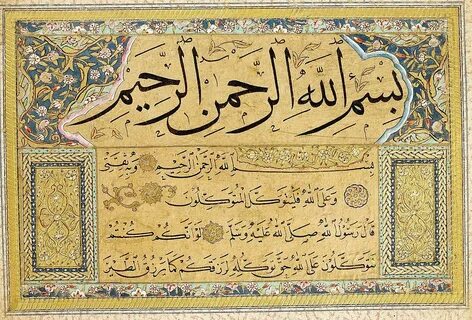 بسم الله الرحمن الرحيم
بسم الله الرحمن الرحيم وبه نستعين
وعلى الله فليتوكل المتوكلون
قال رسول الله صلى الله عليه وسلم لو أنكم كنتم
تتوكلون على الله حق توكله لرزقكم كما يرزق الطير